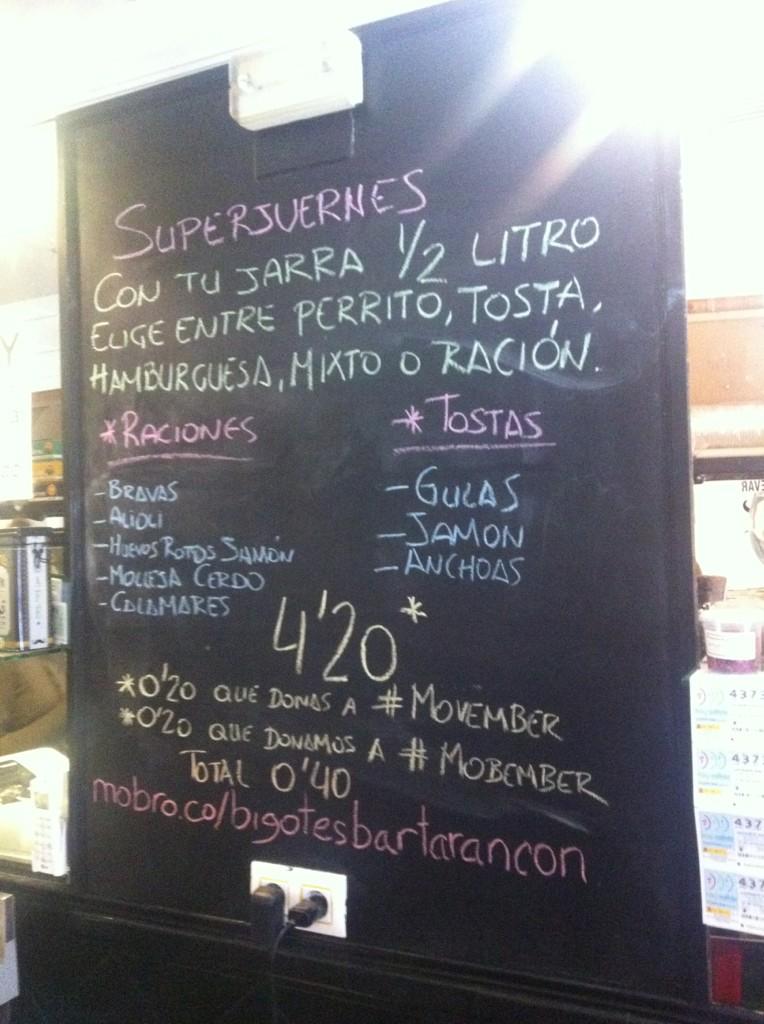 SUPERJUERNES
CON TU JARRA 1/2 LITRO
ELIGE ENTRE PERRITO, TOSTA,
HAMBURGUESA, MIXTO O RACIÓN.
*RACIONES
-BRAVAS
-ALIOLI
-HUEVOS ROTOS JAMÓN
-MOLLEJA CERDO
-CALAMARES
*TOSTAS
-GULAS
-JAMON
-ANCHOAS
4'20*
*0'20 QUE DONAS A #MOVEMBER
*0'20 QUE DONAMOS A #MOBEMBER
TOTAL 0'40
mobro.co/bigotesbartarancon
437
437
437
437